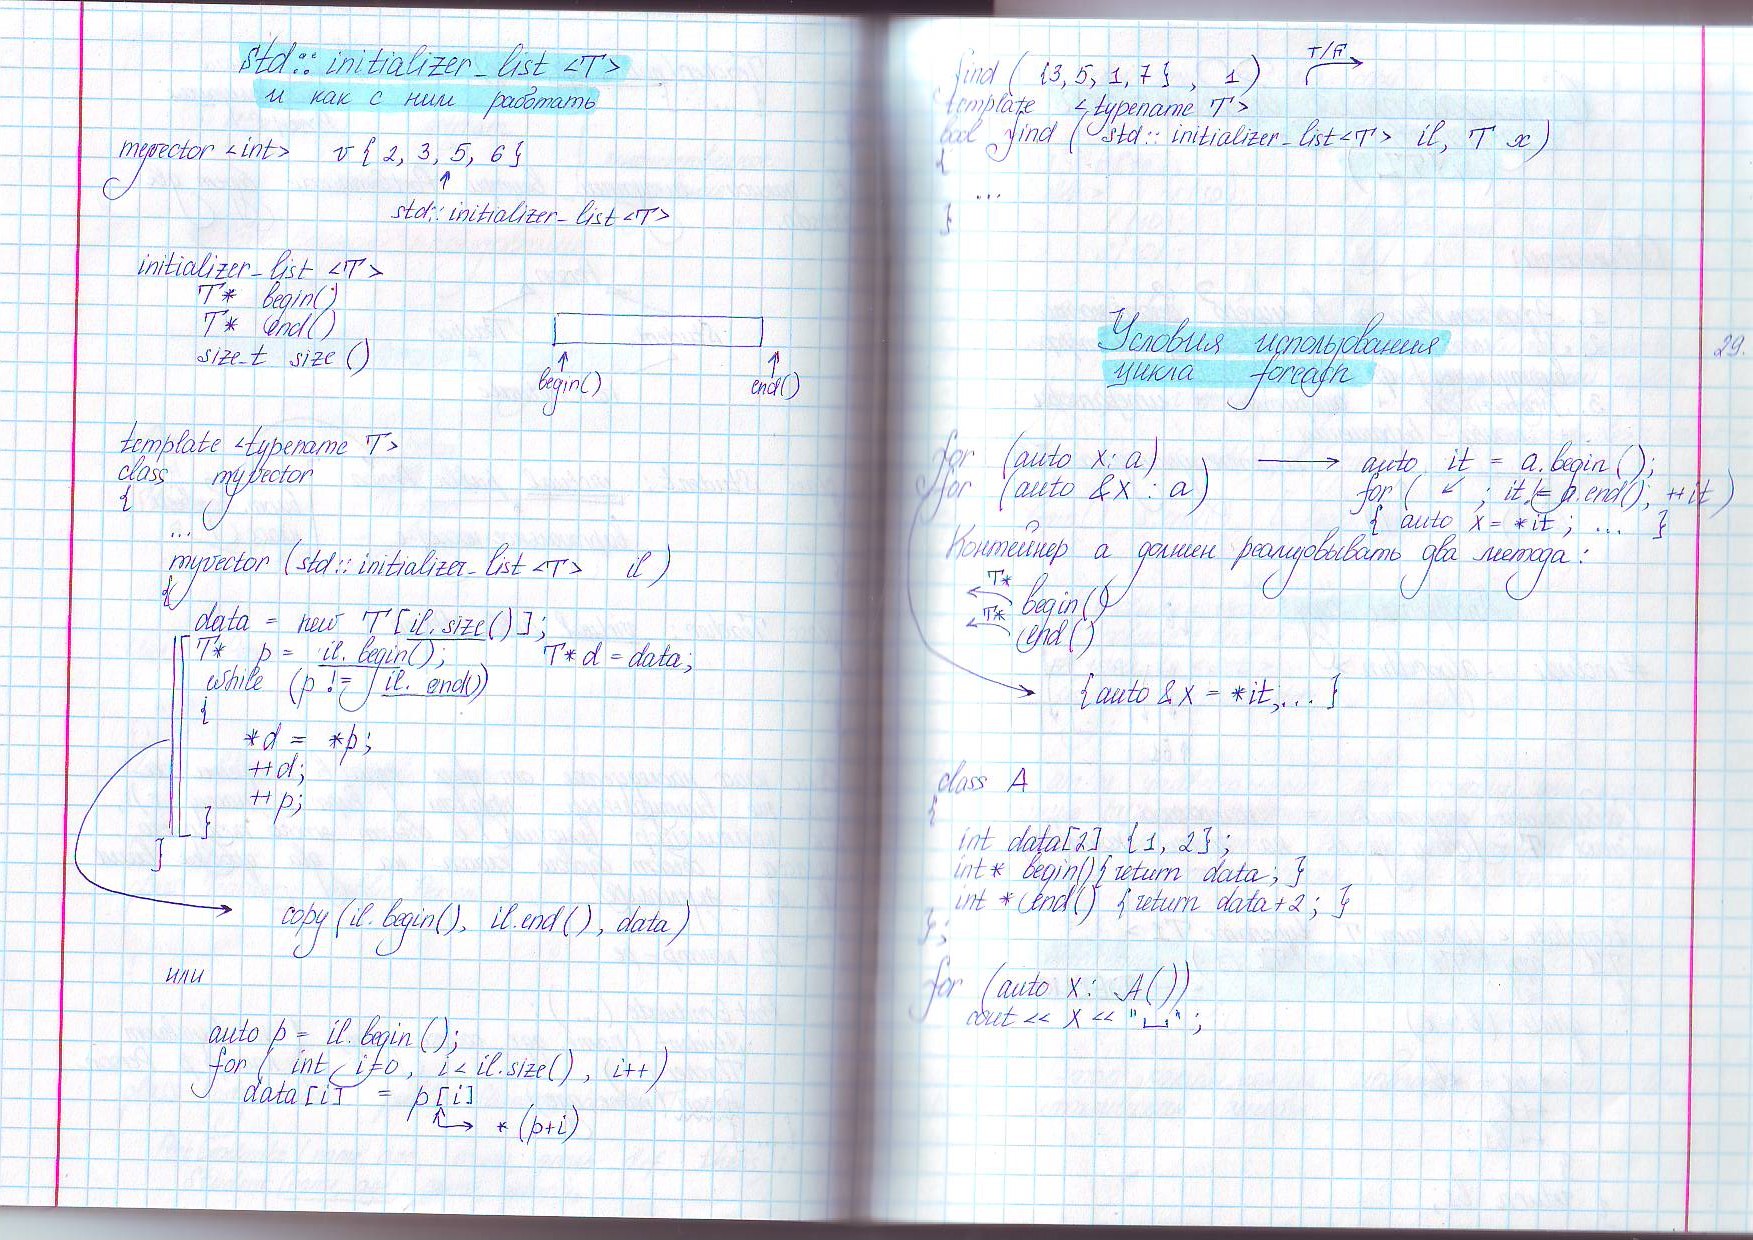 std::initializer_list <T>
и как с ним работать
myvector <int> v{ 2, 3, 5, 6}
↑
std::initializer_list <T>
initializer_list <T>
T* begin()
T* end()
size_t size()
begin() end()
template <typename T>
class myvector
{
...
myvector (std::initializer_list <T> il)
{
data = new T[il.size()];
T* p = il.begin(); T* d = data;
while (p != il.end())
{
*d = *p;
++d;
++p;
}
}
copy (il.begin(), il.end(), data)
или
auto p = il.begin();
for ( int i=0, i < il.size(), i++)
data[i] = p[i]
*(p+i)
find ( {3, 5, 1, 7} , 1) T/F
template <typename T>
bool find ( std::initializer_list<T> il, T x)
{
...
}
Условия использования
цикла foreach
29.
for (auto x: a) → auto it = a.begin();
for (auto &x : a) for ( ↙ ; it != a.end(); ++it)
{ auto x = *it; ... }
Контейнер a должен реализовывать два метода:
T* begin()
T* end()
{auto &x = *it;... }
class A
{
int data[2] {1, 2};
int* begin(){return data; }
int *end() {return data+2; }
};
for (auto x: A())
cout << x << "␣";